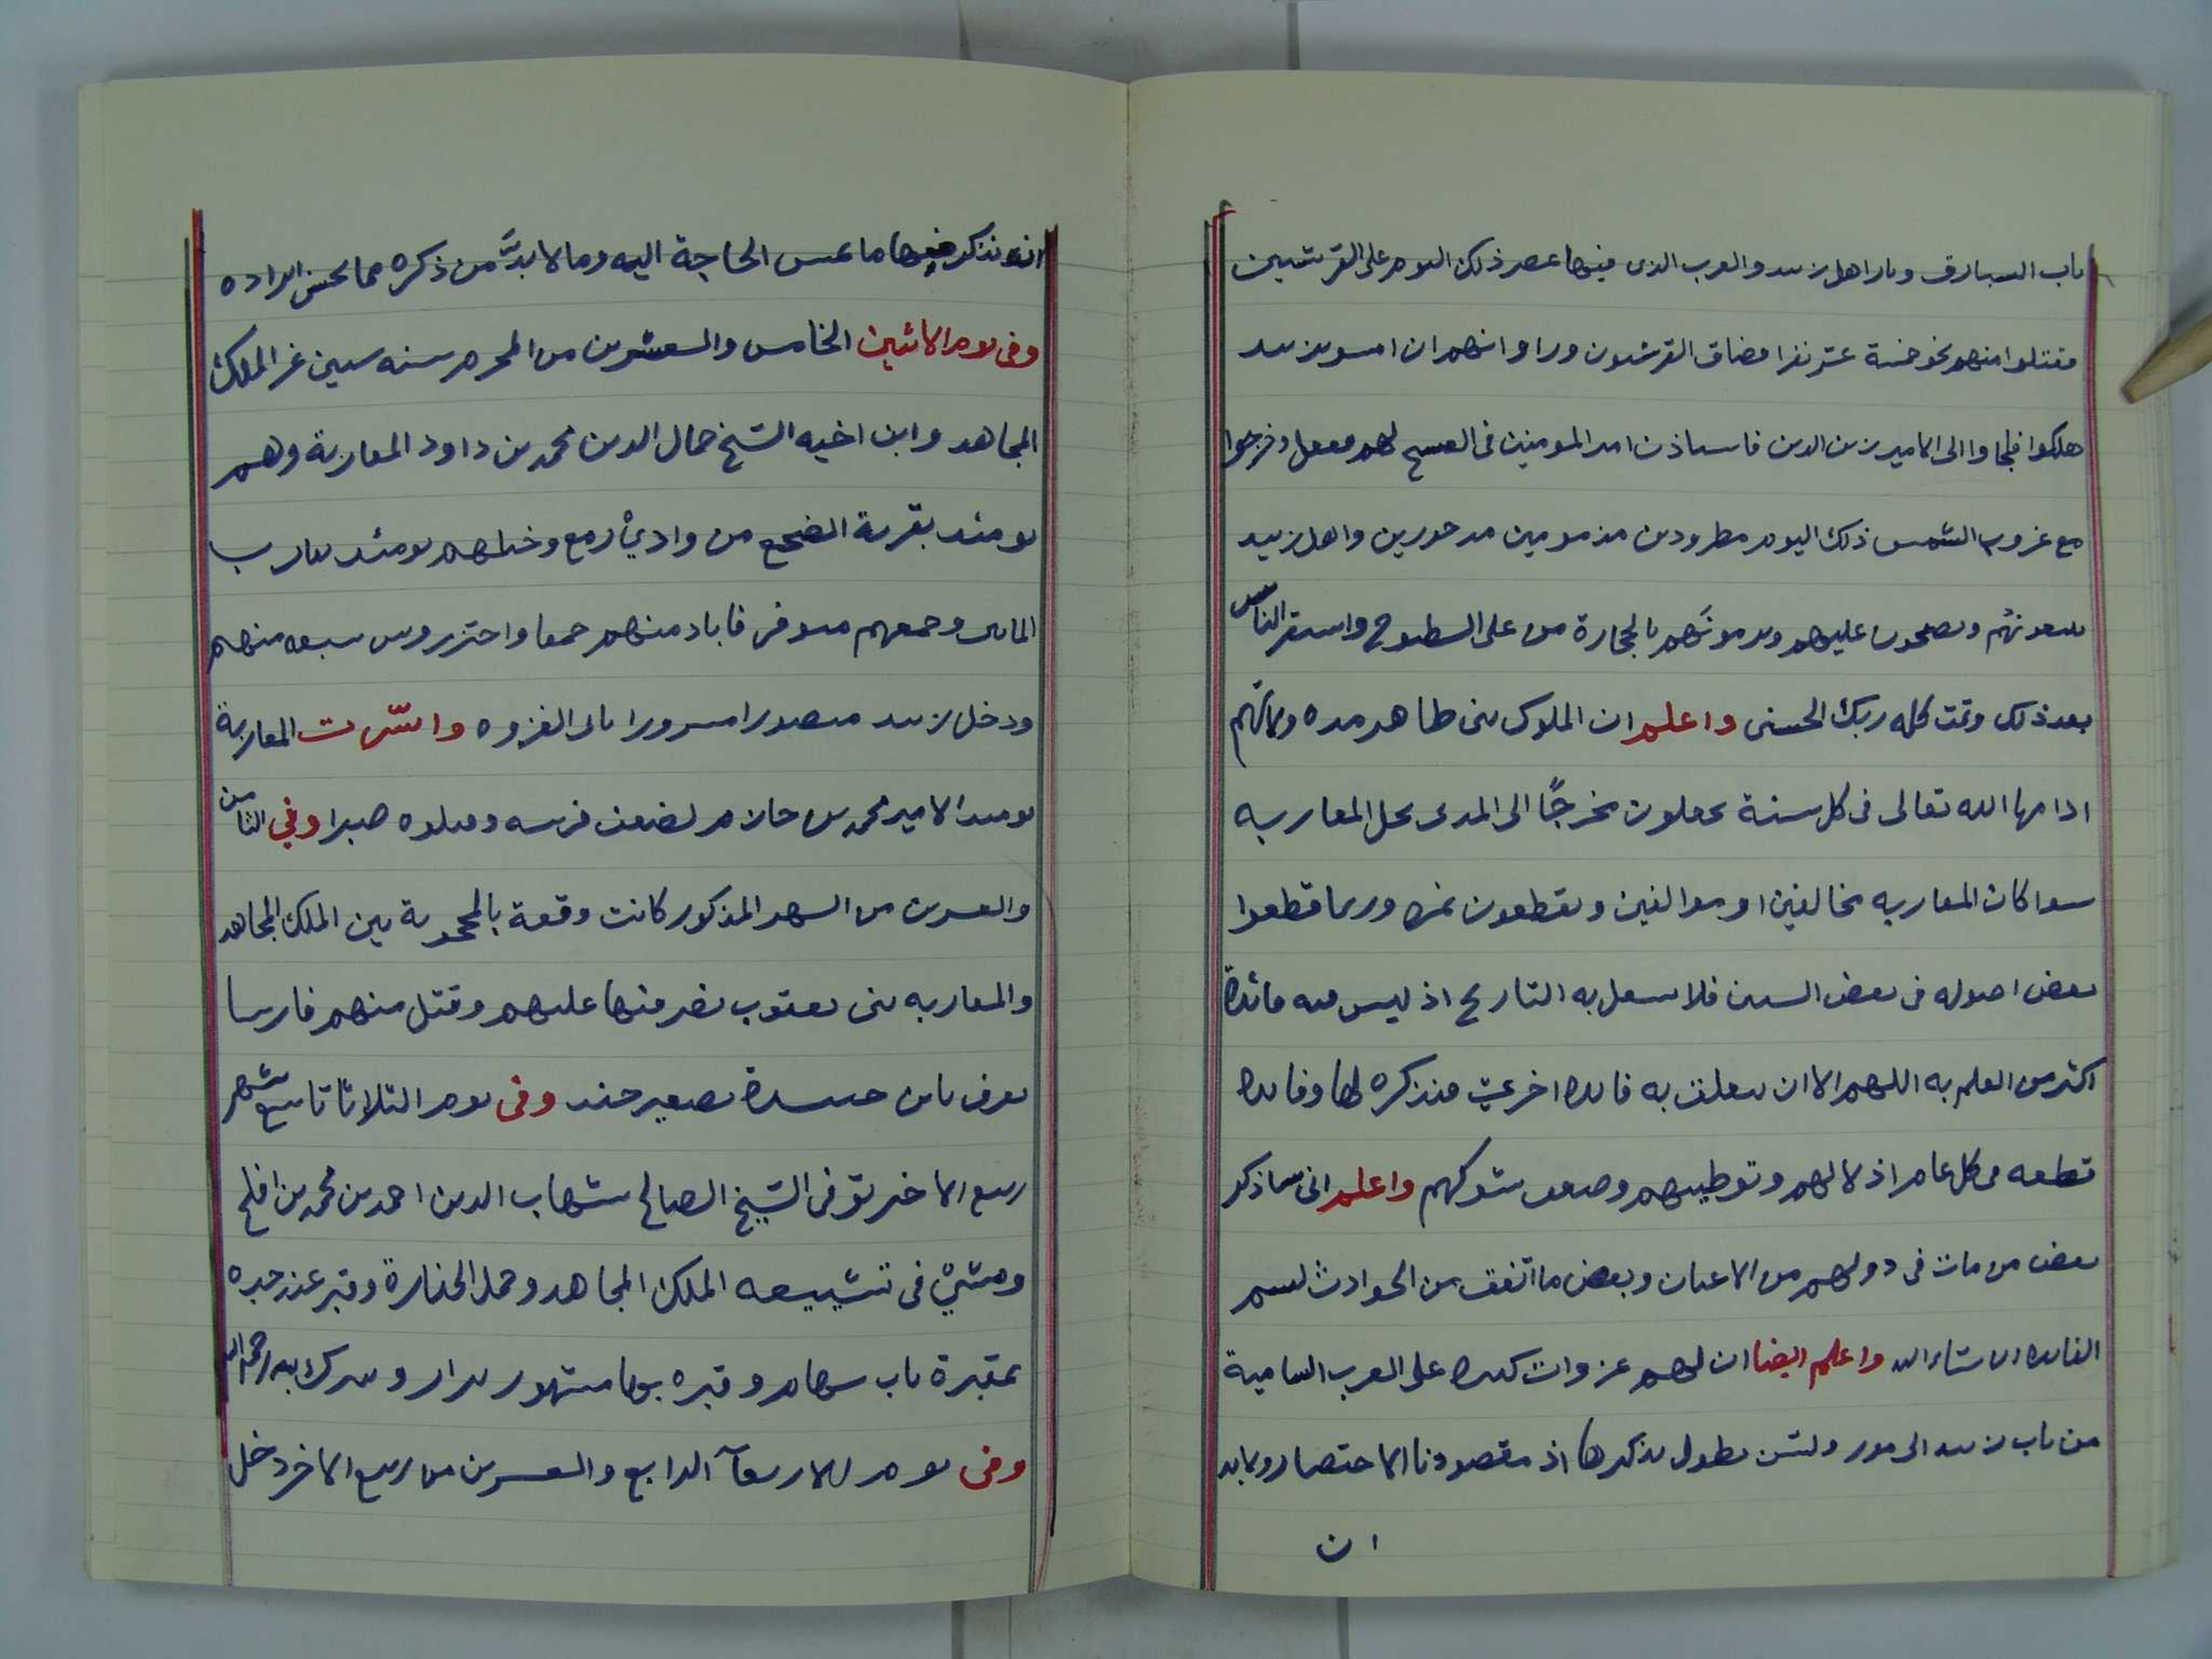 باب السبارق وثار اهل زبيد والعرب الذى فيها عصر ذلك اليوم على القرشيين
فقتلوا منهم نحو خمسة عشر نفرا فضاق القرشيون وراوا انهم ان امسوا بزبيد
هلكوا فلجاوا الى الامير زين الدين فاستاذن امير المومنين فى الفسح لهم ففعل وخرجوا
مع غروب الشمس ذلك اليوم مطرودين مذمومين مدحورين واهل زبيد
يسبونهم ويصيحون عليهم ويرمونهم بالحجارة من على السطوح واستقر الناس
بعد ذلك وتمت كلمه ربك الحسنى واعلم ان الملوك بنى طاهر مده ولايتهم
ادامها الله تعالى فى كل سنة يجعلون مخرجًا الى المدى نحل المعازبه
سوا كان المعازبه مخالفين او موالفين ويقطعون ثمره وربما قطعوا
بعض اصوله فى بعض السنين فلا نطيل به التاريخ اذ ليس فيه فائدة
اكثر من العلم به اللهم الا ان يتعلق به فايده اخرى فنذكره لها وفايدة
قطعه فى كل عام اذلالهم وتوطيهم وضعف شوكتهم واعلم انى ساذكر
بعض من مات فى دولتهم من الاعيان وبعض ما اتفق من الحوادث ليتم
الفايده ان شاء الله واعلم ايضا ان لهم غزوات كثيره على العرب الشامية
من باب زبيد الى مور ولكن يطول بذكرها اذ مقصودنا الاختصار ولابد
ان
ان نذكر فيها ما تمس الحاجة اليه وما لا بدَّ من ذكره مما يحسن ايراده
وفى يوم الاثنين الخامس والعشرين من المحرم سنه ستين غز الملك
المجاهد وابن اخيه الشيخ جمال الدين محمد بن داود المعازبة وهم
يومئذ بقرية الضجع من وادي رمع وخيلهم يومئذ تقارب
المائتين وجمعهم متوفر فاباد منهم جمعا واحتز روس سبعه منهم
ودخل زبيد منصورا مسرورا ثانى الغزوه واسرت المعازبة
يومئذ الامير محمد بن حازم لضعف فرسه وقتلوه صبرا وفي الثامن
والعشرين من الشهر المذكور كانت وقعة بالمحجوبة بين الملك المجاهد
والمعازبه بنى يعقوب نصر فيها عليهم وقتل منهم فارسا
يعرف بابن حنيدة تصغير حند وفى يوم الثلاثا تاسع شهر
ربيع الاخر توفى الشيخ الصالح شهاب الدين احمد بن محمد بن افلح
ومشيْ فى تشييعه الملك المجاهد وحمل الجنازة وقبر عند جده
بمقبرة باب سهام وقبره بها مشهور يزار ويتبرك به رحمه الله
وفى يوم الاربعآ الرابع والعشرين من ربيع الاخر دخل